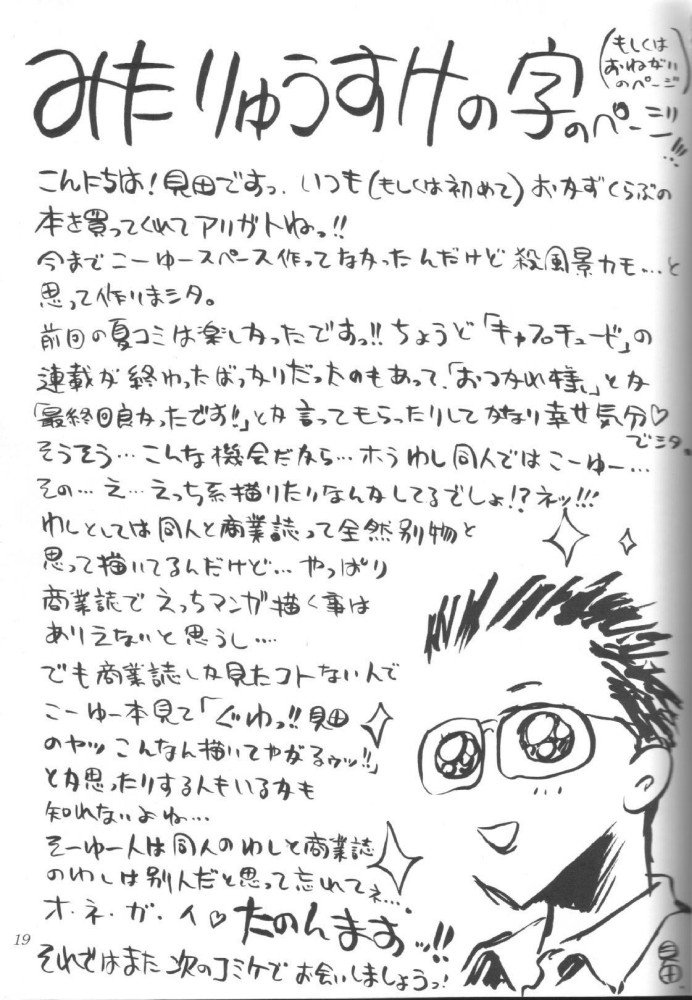 みたりゅうすけの字のページ!!!
(もしくは
おねがい
のページ)
こんにちは!見田ですっ.いつも(もしくは初めて)おかずくらぶの
本を買ってくれてアリガトねっ!!
今までこーゆースペース作ってなかったんだけど殺風景カモ…と
思って作りまシタ。
前回の夏コミは楽しかったですっ!!ちょうど「キャプテュード」の
連載が終わったばっかりだったのもあって、「おつかれ様」とか
「最終回良かったです!」とか言ってもらったりしてかなり幸せ気分♡
でシタ。
そうそう…こんな機会だから…ホラわし同人ではこーゆー…
その…え…えっち系描いたりなんかしてるでしょ!?ネッ!!!
わしとしては同人と商業誌って全然別物と
思って描いてるんだけど…やっぱり
商業誌でえっちマンガ描く事は
ありえないと思うし….
でも商業誌しか見たコトない人で
こーゆー本見て「ぐわっ!!見田
のヤツこんなん描いてやがるゥッ!!」
とか思ったりする人もいるかも
知れないよね…
そーゆー人は同人のわしと商業誌
のわしは別人だと思って忘れてネ…
オ・ネ・ガ・イ♡たのんますっ!!
それではまた次のコミケでお会いしましょうっ!
見田
19